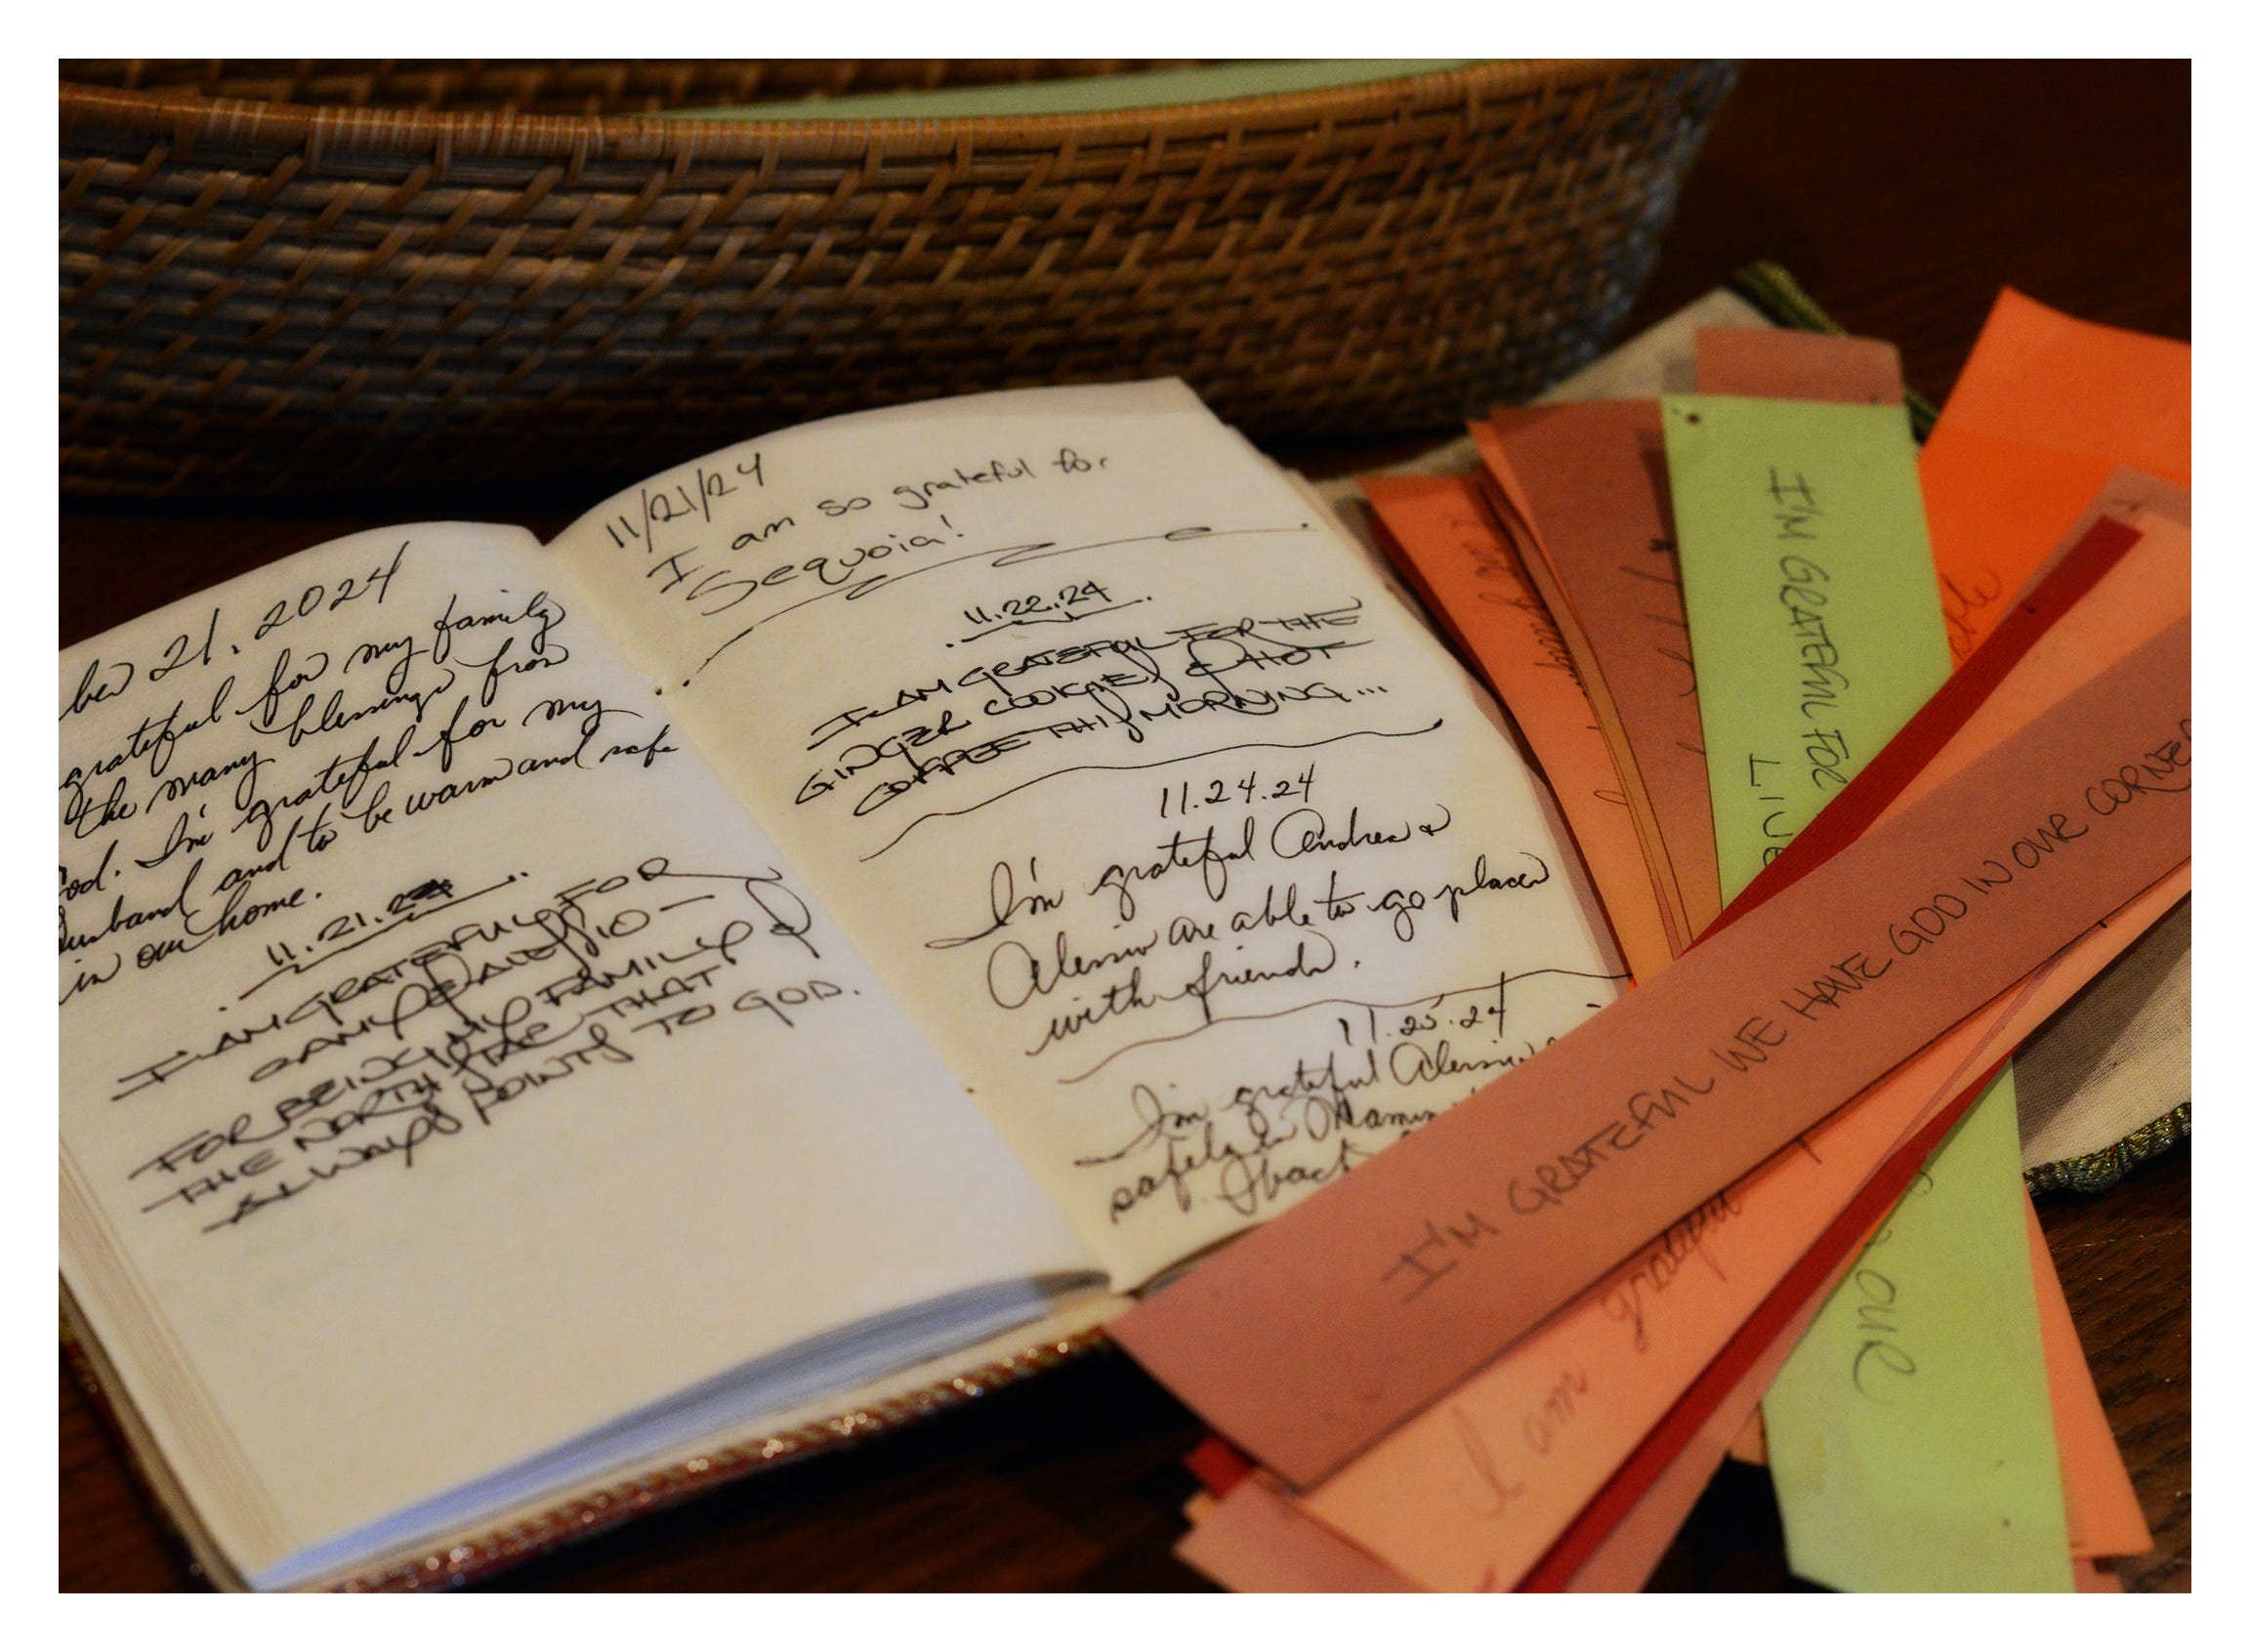 ber 21, 2024
grateful for my family
the many blessings from
God. I'm grateful for my
husband and to be warm and safe
in our home.
11.21.24
I AM GRATEFUL FOR
FOR BEING MY FAMILY
THE NORTH STAR THAT
ALWAYS POINTS TO GOD.
11/21/24
I am so grateful for
Sequoia!
11.22.24
I AM GRATEFUL FOR THE
GINGER COOKIES & HOT
COFFEE THIS MORNING...
11.24.24
I'm grateful Andrea &
Alessio are able to go places
with friends.
11.25.24
I'm grateful Alessio
safely in
back
I'M GRATEFUL FOR
LIVE
OUR
I'M GRATEFUL WE HAVE GOD IN OUR CORNER
I am grateful